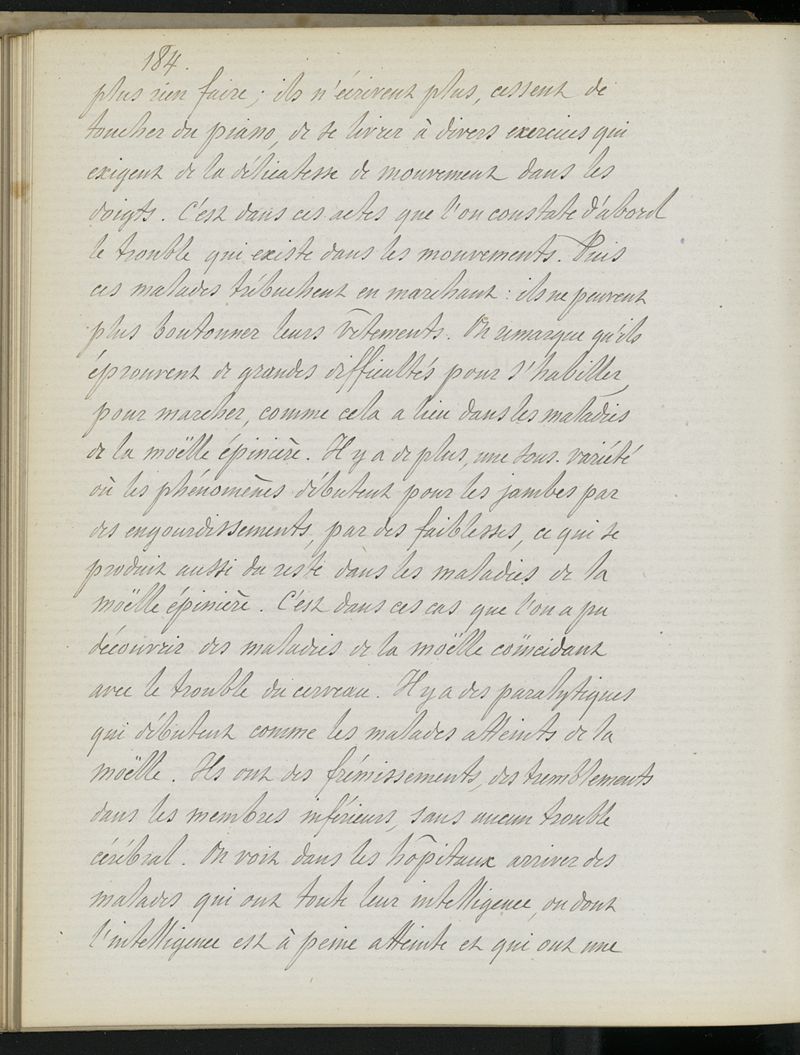 184.
plus rien faire ; ils n'écrivent plus, cessent de
toucher du piano, de se livrer à divers exercices qui
exigent de la délicatesse de mouvement dans les
doigts. C'est dans ces actes que l'on constate d'abord
le trouble qui existe dans les mouvements. Puis
ces malades trébuchent en marchant : ils ne peuvent
plus boutonner leurs vêtements. On remarque qu'ils
éprouvent de grandes difficultés pour s'habiller,
pour marcher, comme cela a lieu dans les maladies
de la moëlle épinière. Il y a de plus, une sous-variété
où les phénomènes débutent pour les jambes par
des engourdissements, par des faiblesses, ce qui se
produit aussi du reste dans les maladies de la
moëlle épinière. C'est dans ces cas que l'on a pu
découvrir des maladies de la moëlle coïncidant
avec le trouble du cerveau. Il y a des paralytiques
qui débutent comme les malades atteints de la
moëlle. Ils ont des frémissements, des tremblements
dans les membres inférieurs, sans aucun trouble
cérébral. On voit dans les hôpitaux arriver des
malades qui ont toute leur intelligence, ou dont
l'intelligence est à peine atteinte et qui ont une